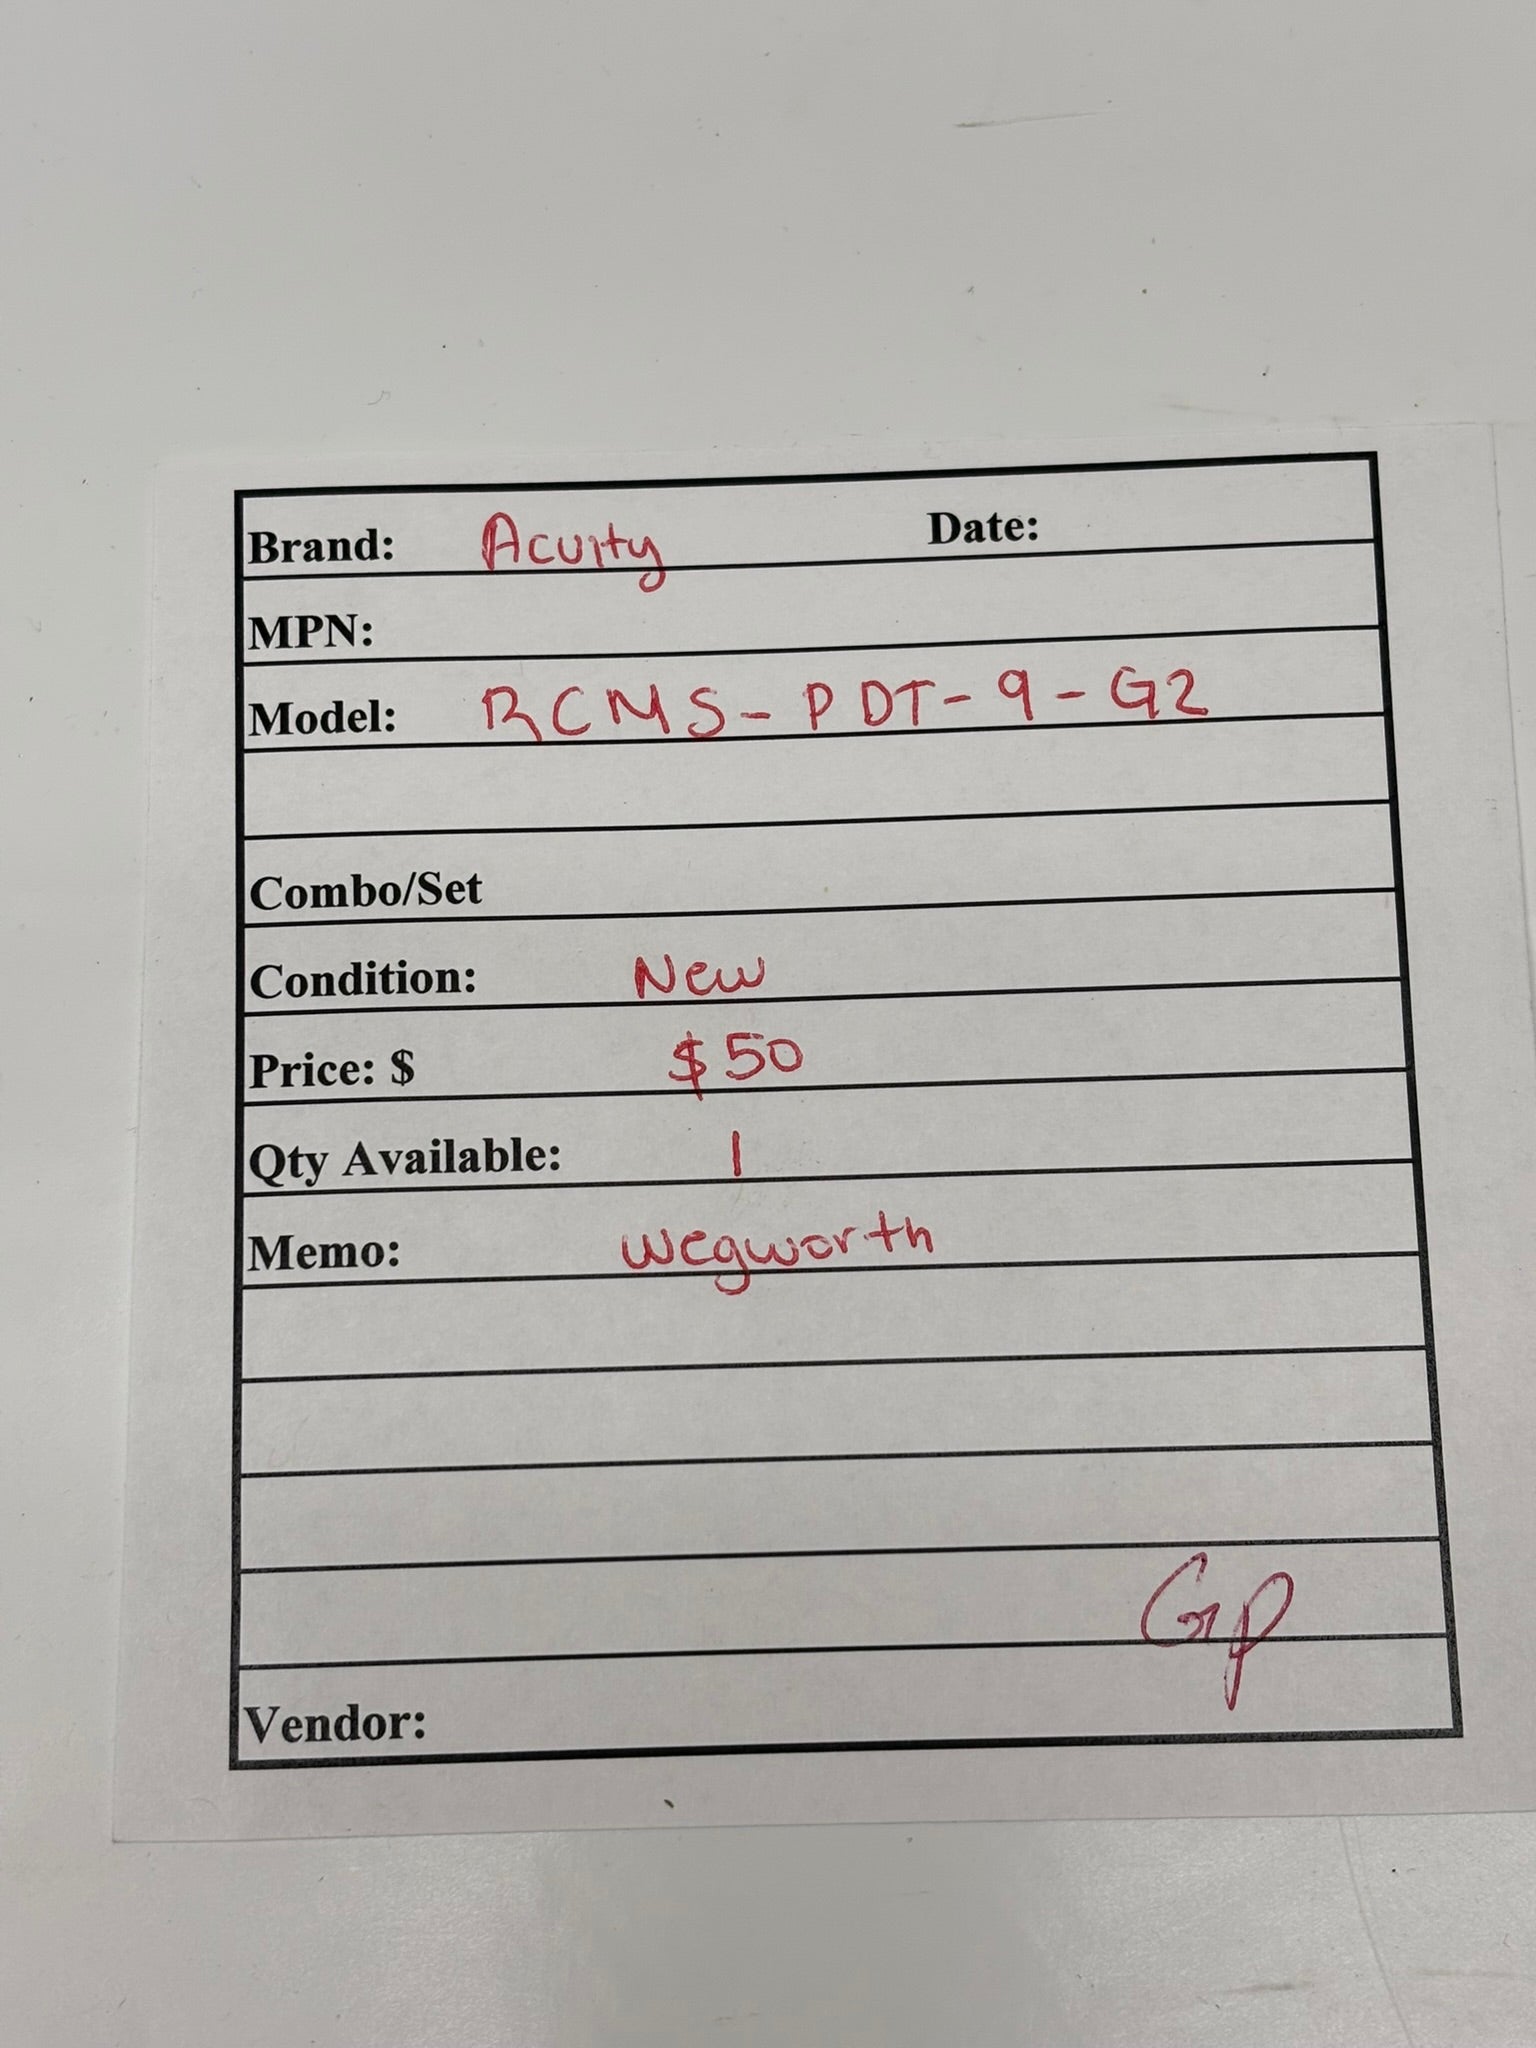 Brand: Acuity Date:
MPN:
Model: RCMS-PDT-9-G2
Combo/Set
Condition: New
Price: $ $50
Qty Available: 1
Memo: Wegworth
GP
Vendor: